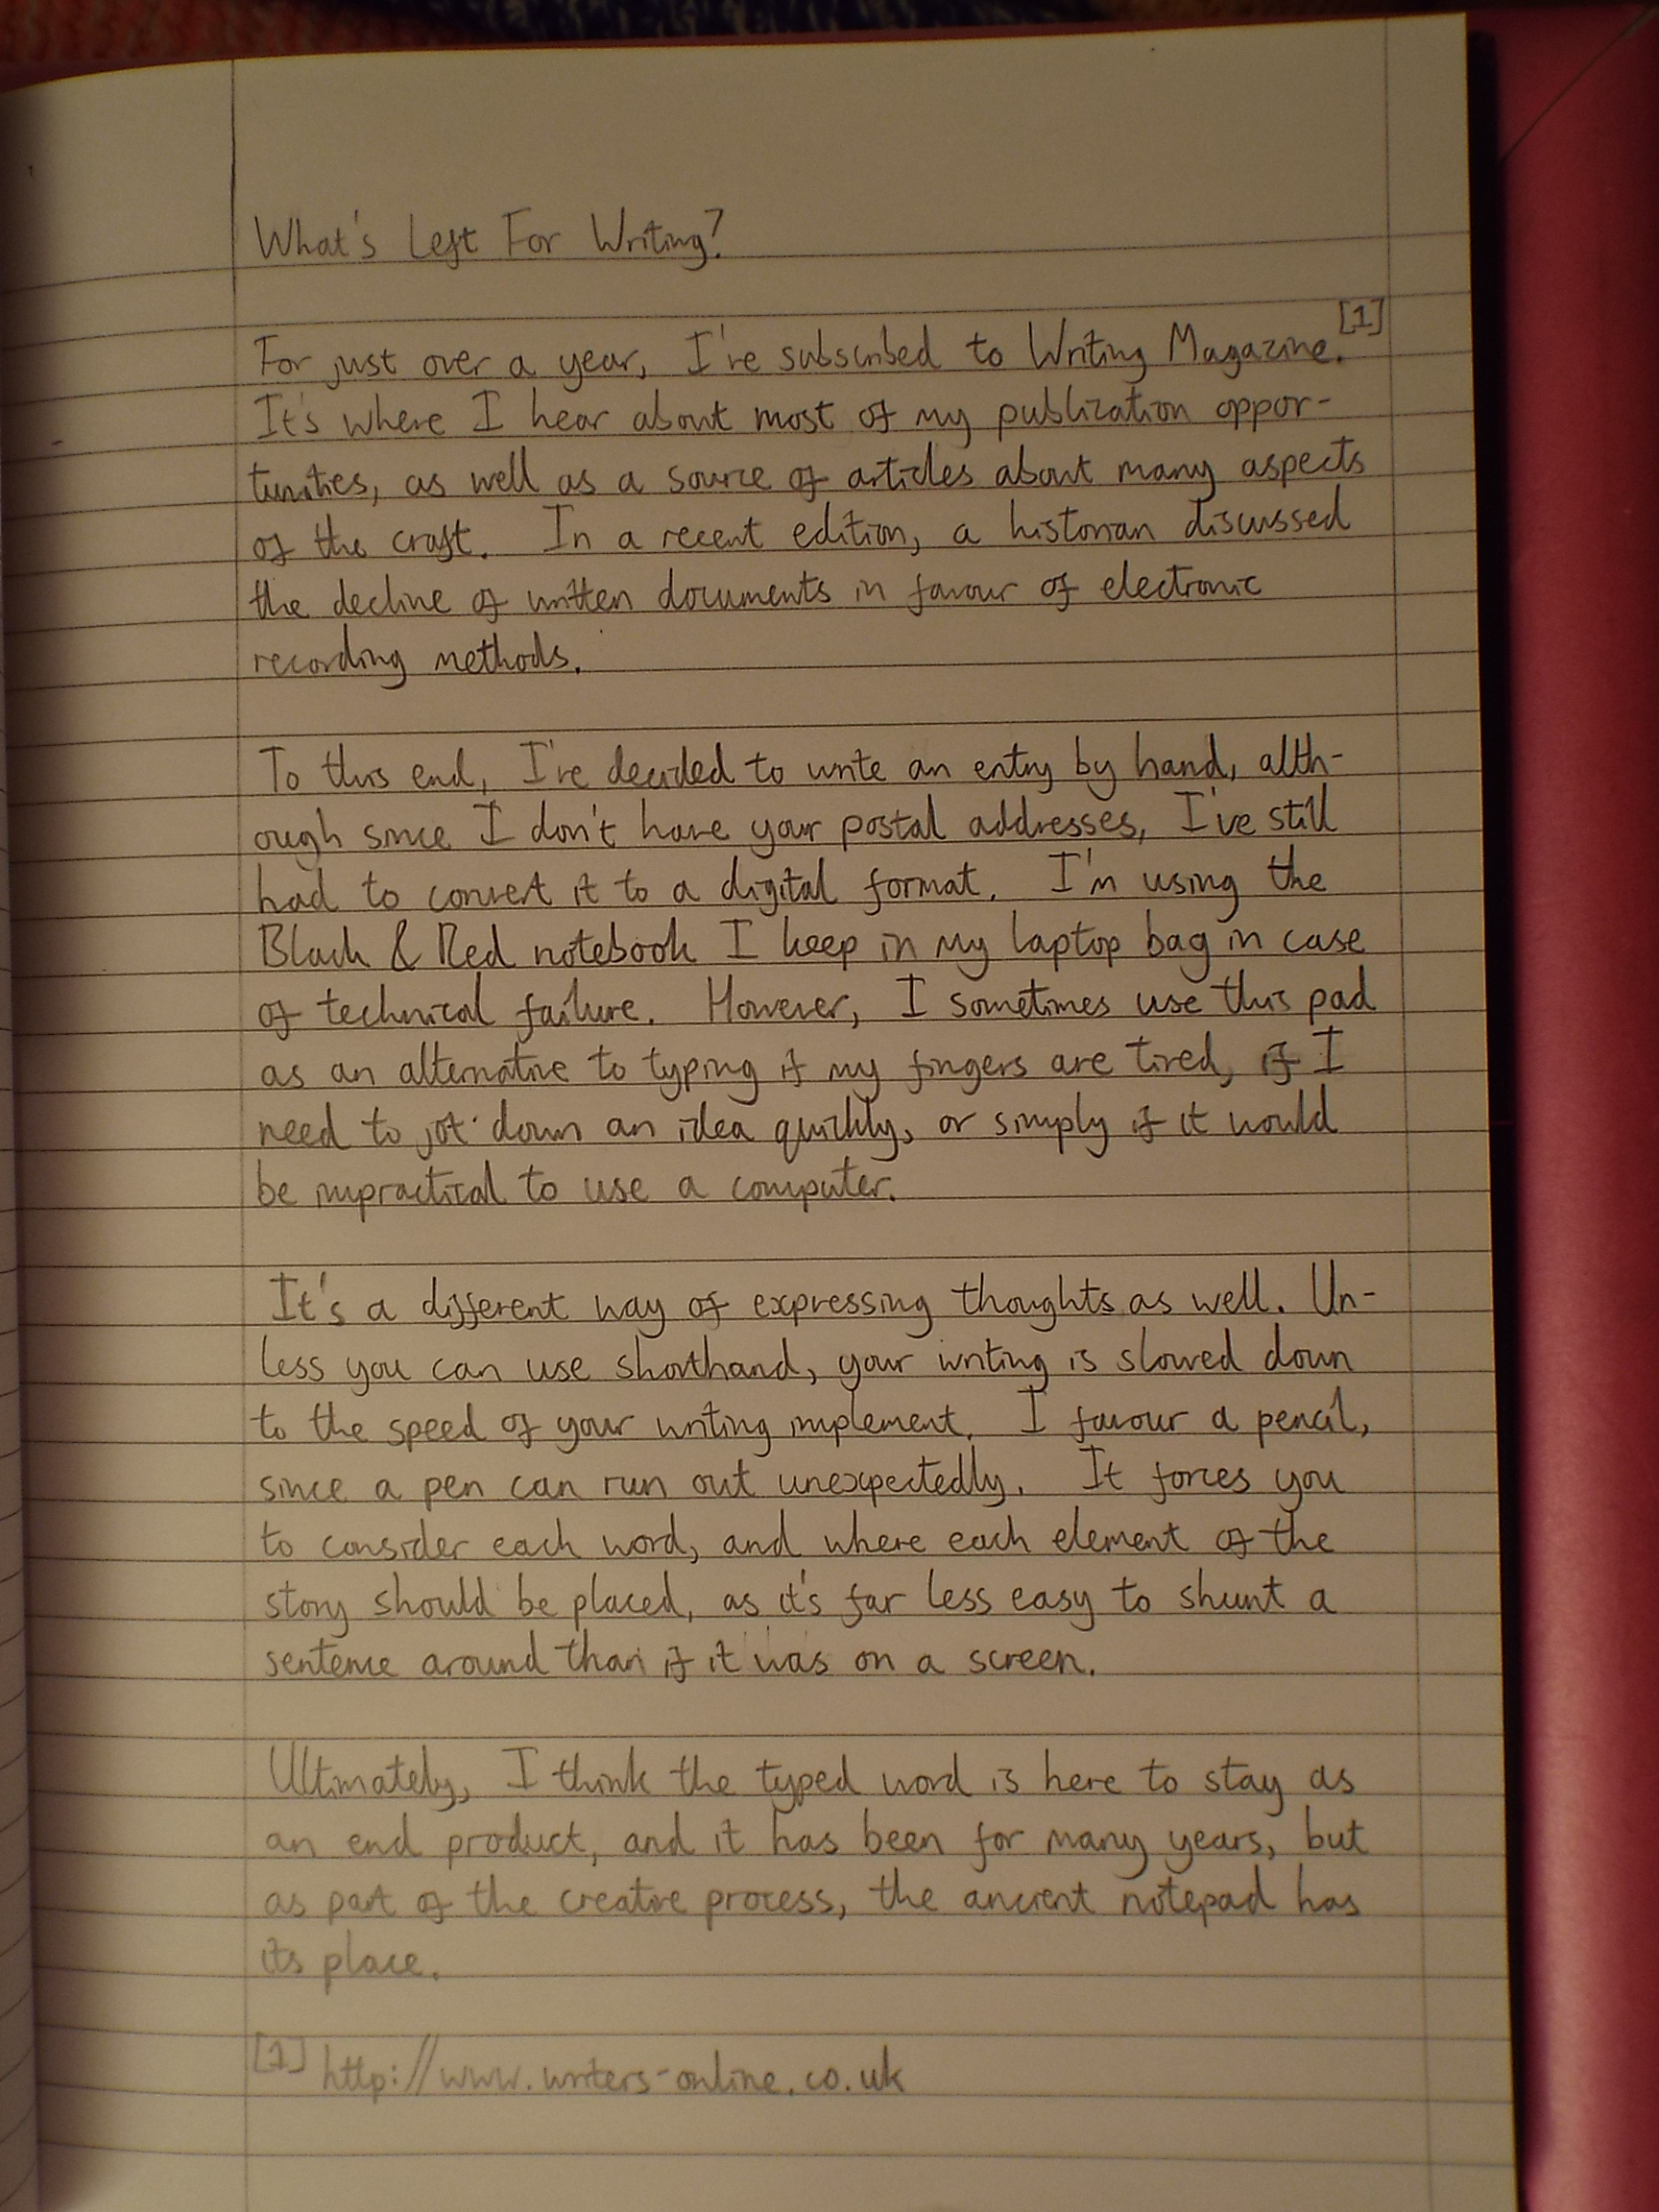 What's Left For Writing?
For just over a year, I've subscribed to Writing Magazine.[1]
It's where I hear about most of my publication oppor-
tunities, as well as a source of articles about many aspects
of the craft. In a recent edition, a historian discussed
the decline of written documents in favour of electronic
recording methods.
To this end, I've decided to write an entry by hand, alth-
ough since I don't have your postal addresses, I've still
had to convert it to a digital format. I'm using the
Black & Red notebook I keep in my laptop bag in case
of technical failure. However, I sometimes use this pad
as an alternative to typing if my fingers are tired, if I
need to jot down an idea quickly, or simply if it would
be impractical to use a computer.
It's a different way of expressing thoughts as well. Un-
less you can use shorthand, your writing is slowed down
to the speed of your writing implement. I favour a pencil,
since a pen can run out unexpectedly. It forces you
to consider each word, and where each element of the
story should be placed, as it's far less easy to shunt a
sentence around than if it was on a screen.
Ultimately, I think the typed word is here to stay as
an end product, and it has been for many years, but
as part of the creative process, the ancient notepad has
its place.
[1] http://www.writers-online.co.uk